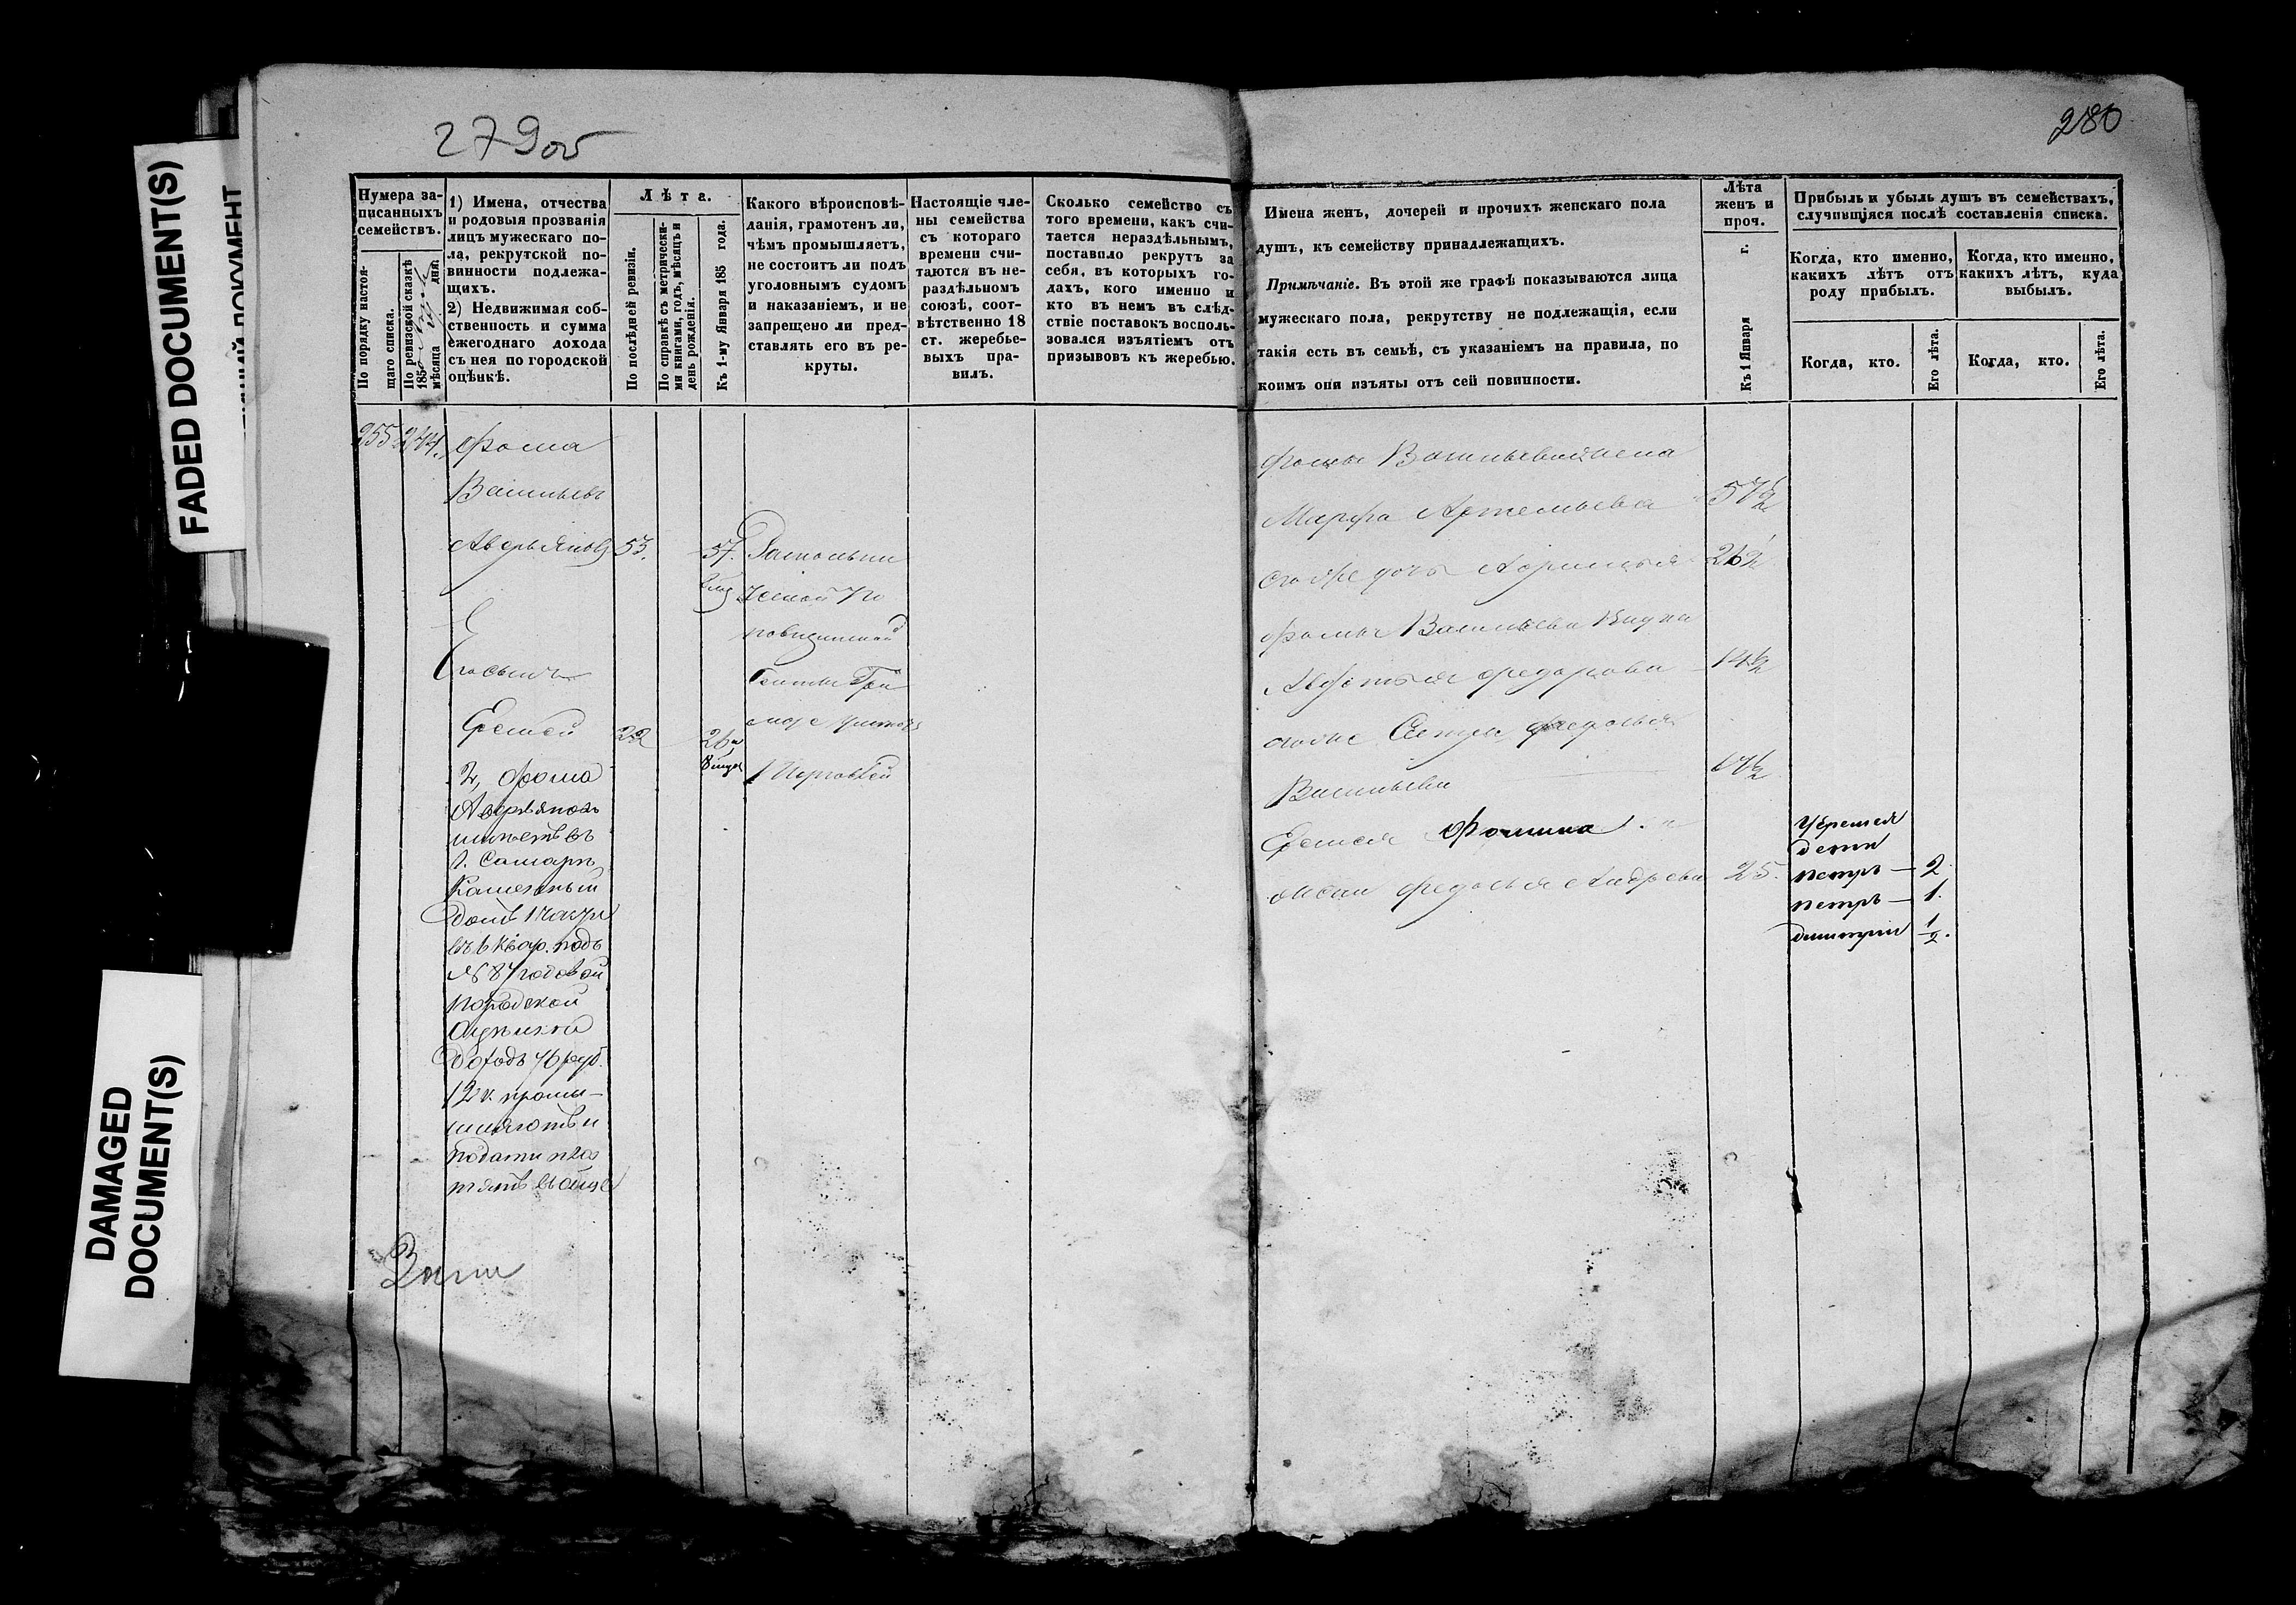 FADED DOCUMENT(S)
DAMAGED
DOCUMENT(S)
279об
280
Нумера за-
писанныхъ
семействъ.
По порядку настоя-
щаго списка.
По ревизской сказкѣ
185
мѣсяца дня.
1) Имена, отчества
и родовыя прозванія
лицъ мужескаго по-
ла, рекрутской по-
винности подлежа-
щихъ.
2) Недвижимая соб-
ственность и сумма
ежегоднаго дохода
съ нея по городской
оцѣнкѣ.
Лѣта.
По послѣдней ревизіи.
По справкѣ съ метрически-
ми книгами, годъ, мѣсяцъ и
день рожденія.
Къ 1-му Января 185 года.
Какого вѣроисповѣ-
данія, грамотенъ ли,
чѣмъ промышляетъ,
не состоитъ ли подъ
уголовнымъ судомъ
и наказаніемъ, и не
запрещено ли пред-
ставлять его въ ре-
круты.
Настоящіе чле-
ны семейства
съ котораго
времени счи-
таются въ не-
раздѣльномъ
союзѣ, соот-
вѣтственно 18
ст. жеребье-
выхъ пра-
вилъ.
Сколько семейство съ
того времени, какъ счи-
тается нераздѣльнымъ,
поставило рекрутъ за
себя, въ которыхъ го-
дахъ, кого именно и
кто въ немъ въ слѣд-
ствіе поставокъ восполь-
зовался изъятіемъ отъ
призывовъ къ жеребью.
Имена женъ, дочерей и прочихъ женскаго пола
душъ, къ семейству принадлежащихъ.
Примѣчаніе. Въ этой же графѣ показываются лица
мужескаго пола, рекрутству не подлежащія, если
такія есть въ семьѣ, съ указаніемъ на правила, по
коимъ они изъяты отъ сей повинности.
Лѣта
женъ и
проч.
Къ 1 Января г.
Прибыль и убыль душъ въ семействахъ,
случившіяся послѣ составленія списка.
Когда, кто именно,
какихъ лѣтъ отъ
роду прибылъ.
Когда, кто именно,
какихъ лѣтъ, куда
выбылъ.
Когда, кто.
Его лѣта.
Когда, кто.
Его лѣта.
255 274. Фома
Васильевъ
Аверьяновъ 53. 57.
Еремей 22 26
2, Фома
Аверьяновъ
имѣетъ въ
г. Самарѣ
Каменный
домъ 1 части
въ 6 квар. подъ
№ 87 годовой
по городской
оцѣнкой
доходъ 76 руб.
12 к. промы-
шляютъ и
подати пла
тятъ вобще
Фомы Васильева жена
Марфа Артемьева 57½
его же дочь 26½
Фомы Васильева
Авдотья Федорова 14½
Федосья
Васильева 17½
Еремея Фомина
жена Федосья Андреева 25.
У Еремея
дети
Петръ — 2.
Петръ — 1.
Дмитрій ½.